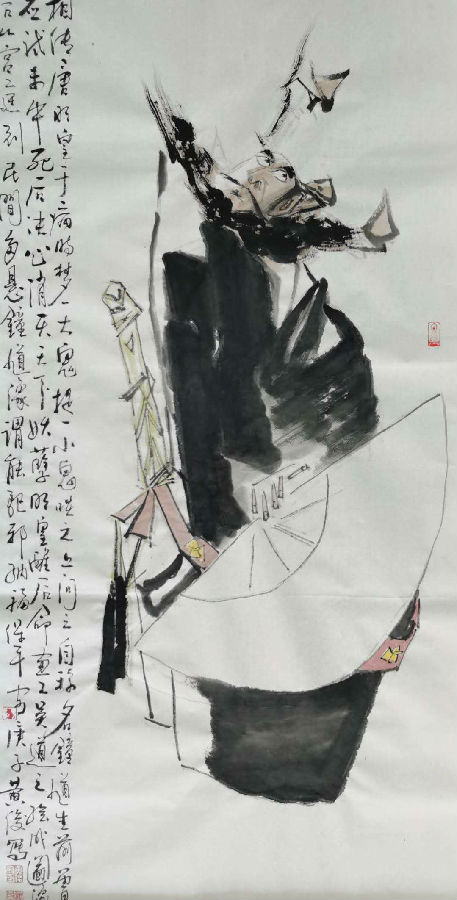 相传唐明皇于病时梦一大鬼捉一小鬼啖之上问之自称名鐘馗生前曾
应武未中死后决心消灭天下妖孽明皇醒后命画工吴道之绘成圖像
后从宫廷到民間多悬鐘馗像谓能驱邪纳福保平安庚子黄俊写